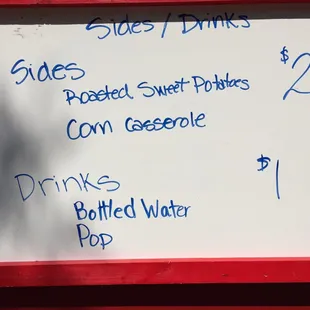 Sides / Drinks
Sides $2
Roasted Sweet Potatoes
Corn Casserole
Drinks $1
Bottled Water
Pop